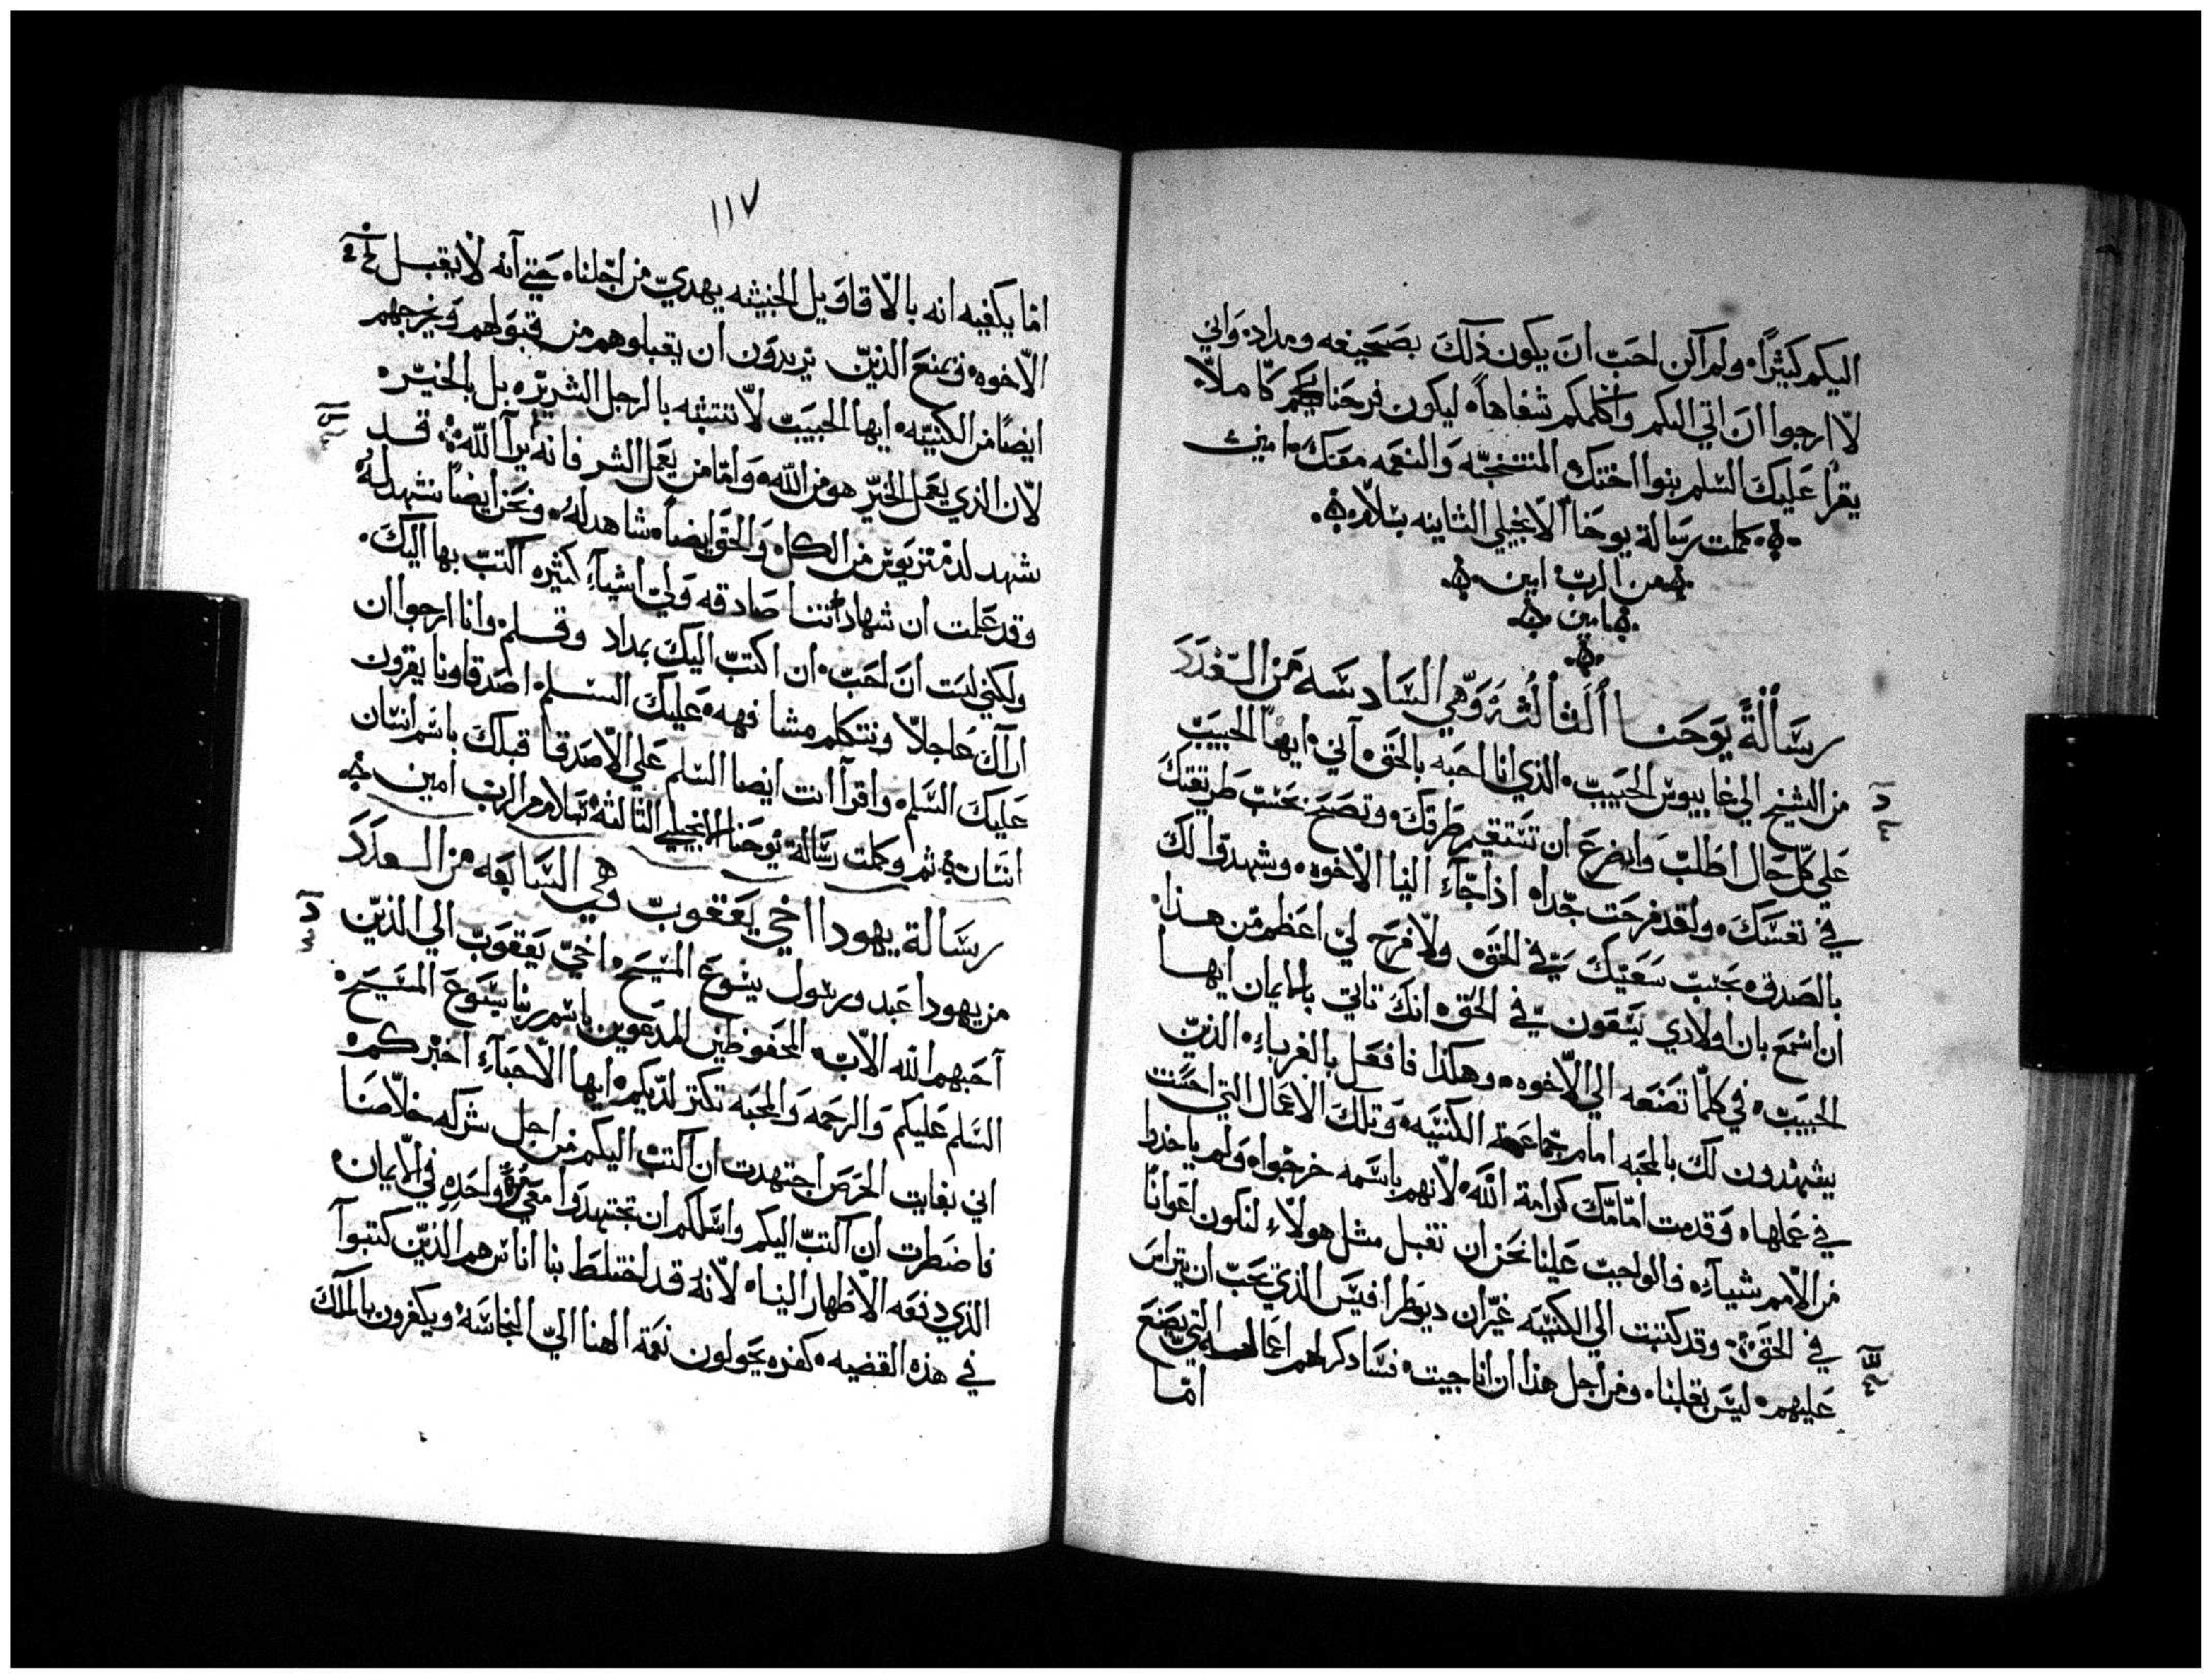 اليكم كثيراً ولم اكن احب ان يكون ذلك بصحيفه ومداد واني
لا ارجوا ان اتي اليكم واكلمكم شفاهاً ليكون فرحنا بكم كاملاً
يقرا عليك السلم بنوا اختك المنتخبه والنعمه معك امين
كملت رسالة يوحنا الانجيلي الثانيه بسلام
من الرب امين
امين
رسالة يوحنا الثالثة وهي السادسه من العدد
د
من الشيخ الي غاييوس الحبيب الذي انا احبه بالحق اني ايها الحبيب
علي كل حال اطلب واضرع ان تستقيم طرقك وتصح بحسب طريقتك
في نفسك ولقد فرحت جدا اذا جاء الينا الاخوه وشهدوا لك
بالصدق بحسب سعيك في الحق ولا فرح لي اعظم من هذا
ان اسمع بان اولادي يسعون في الحق انك تاتي بالايمان ايها
الحبيب في كلما تصنعه الي الاخوه وهكذا فافعل بالغرباء الذين
يشهدون لك بالمحبه امام جماعة الكنيسه وتلك الاعمال التي احسنت
في عملها وقدمت امامك كرامة الله لانهم باسمه خرجوا ولم ياخذوا
من الامم شيا فالواجب علينا نحن ان نقبل مثل هولاء لنكون اعوانا
في الحق وقد كتبت الي الكنيسه غير ان ديوطرافيس الذي يحب ان يتراس
عليهم ليس يقبلنا ومن اجل هذا ان انا جيت فساذكر لهم اعماله التي يصنع
اما
١١٧
اما يكفيه انه بالاقاويل الخبيثه يهدي من اجلنا حتي انه لا يقبل
الاخوه ويمنع الذين يريدون ان يقبلوهم من قبولهم ويخرجهم
ايضاً من الكنيسه ايها الحبيب لا تتشبه بالرجل الشرير بل بالخير
لان الذي يعمل الخير هو من الله واما من يعمل الشر فانه ير الله قد
شهد لدمتريوس من الكل والحق ايضاً شاهد له ونحن ايضاً نشهد له
وقد علمت ان شهادتنا صادقه ولي اشياء كثيره اكتب بها اليك
ولكني لست ان احب ان اكتب اليك بمداد وقلم وانا ارجوا ان
اراك عاجلا ونتكلم مشافهه عليك السلم اصدقاونا يقرون
عليك السلم واقرا انت ايضا السلم علي الاصدقا قبلك باسم انسان
انسان ثم وكملت رسالة يوحنا الانجيلي الثالثة بسلام من الرب امين
رسالة يهودا اخي يعقوب وهي السابعه من العدد
د
من يهودا عبد ورسول يسوع المسيح اخي يعقوب الي الذين
احبهم الله الاب المحفوظين المدعوين باسم ربنا يسوع المسيح
السلم عليكم والرحمه والمحبه تكثر لديكم ايها الاحباء اخبركم
اني بغايت الحرص اجتهدت ان اكتب اليكم من اجل شركه خلاصنا
فاضطرت ان اكتب اليكم واسلكم ان تجتهدوا معي مرة واحده في الايمان
الذي دفعه الاظهار الينا لانه قد اختلط بنا اناس هم الذين كتبوا
في هذه القضيه كفره يحولون نعمة الهنا الي النجاسه ويكفرون بالملك